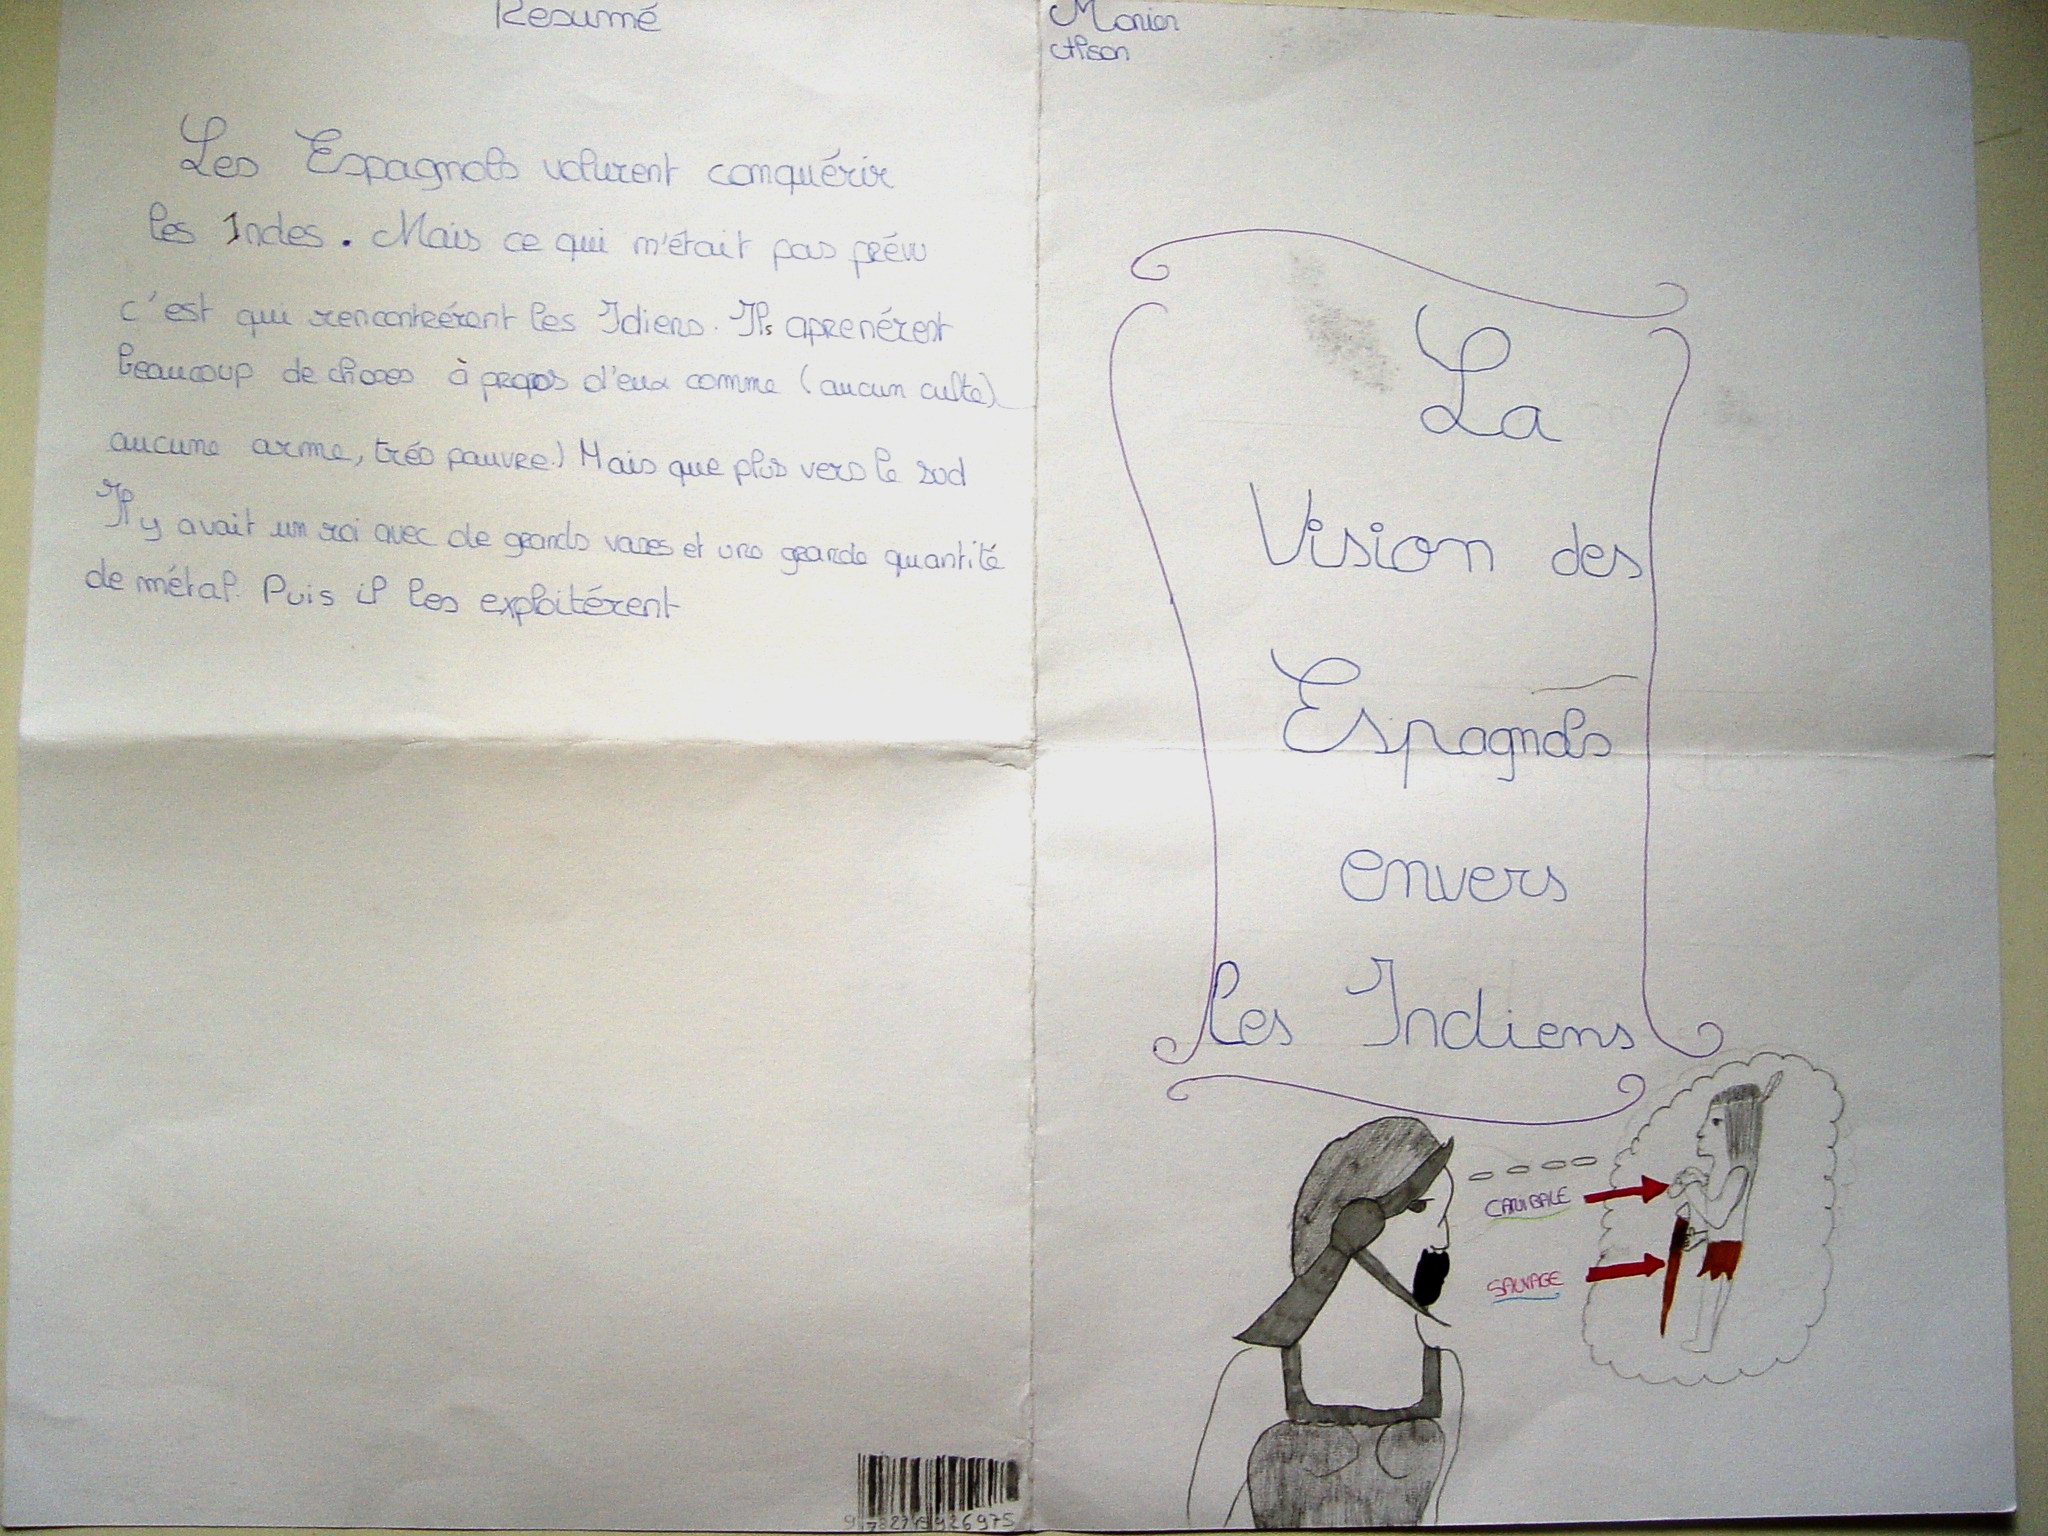 Résumé
Les Espagnols volurent conquérir
les Indes. Mais ce qui m'était pas prévu
c'est qui rencontrérent les Idiens. Ils aprenérent
beaucoup de choses à propos d'eux comme (aucun culte)
aucune arme, trés pauvre.) Mais que plus vers le sud
Il y avait un roi avec de grands vases et une grande quantité
de métal. Puis il les exploitérent
Alison
La
Vision des
Espagnols
envers
les Indiens
CANIBALE
SAUVAGE